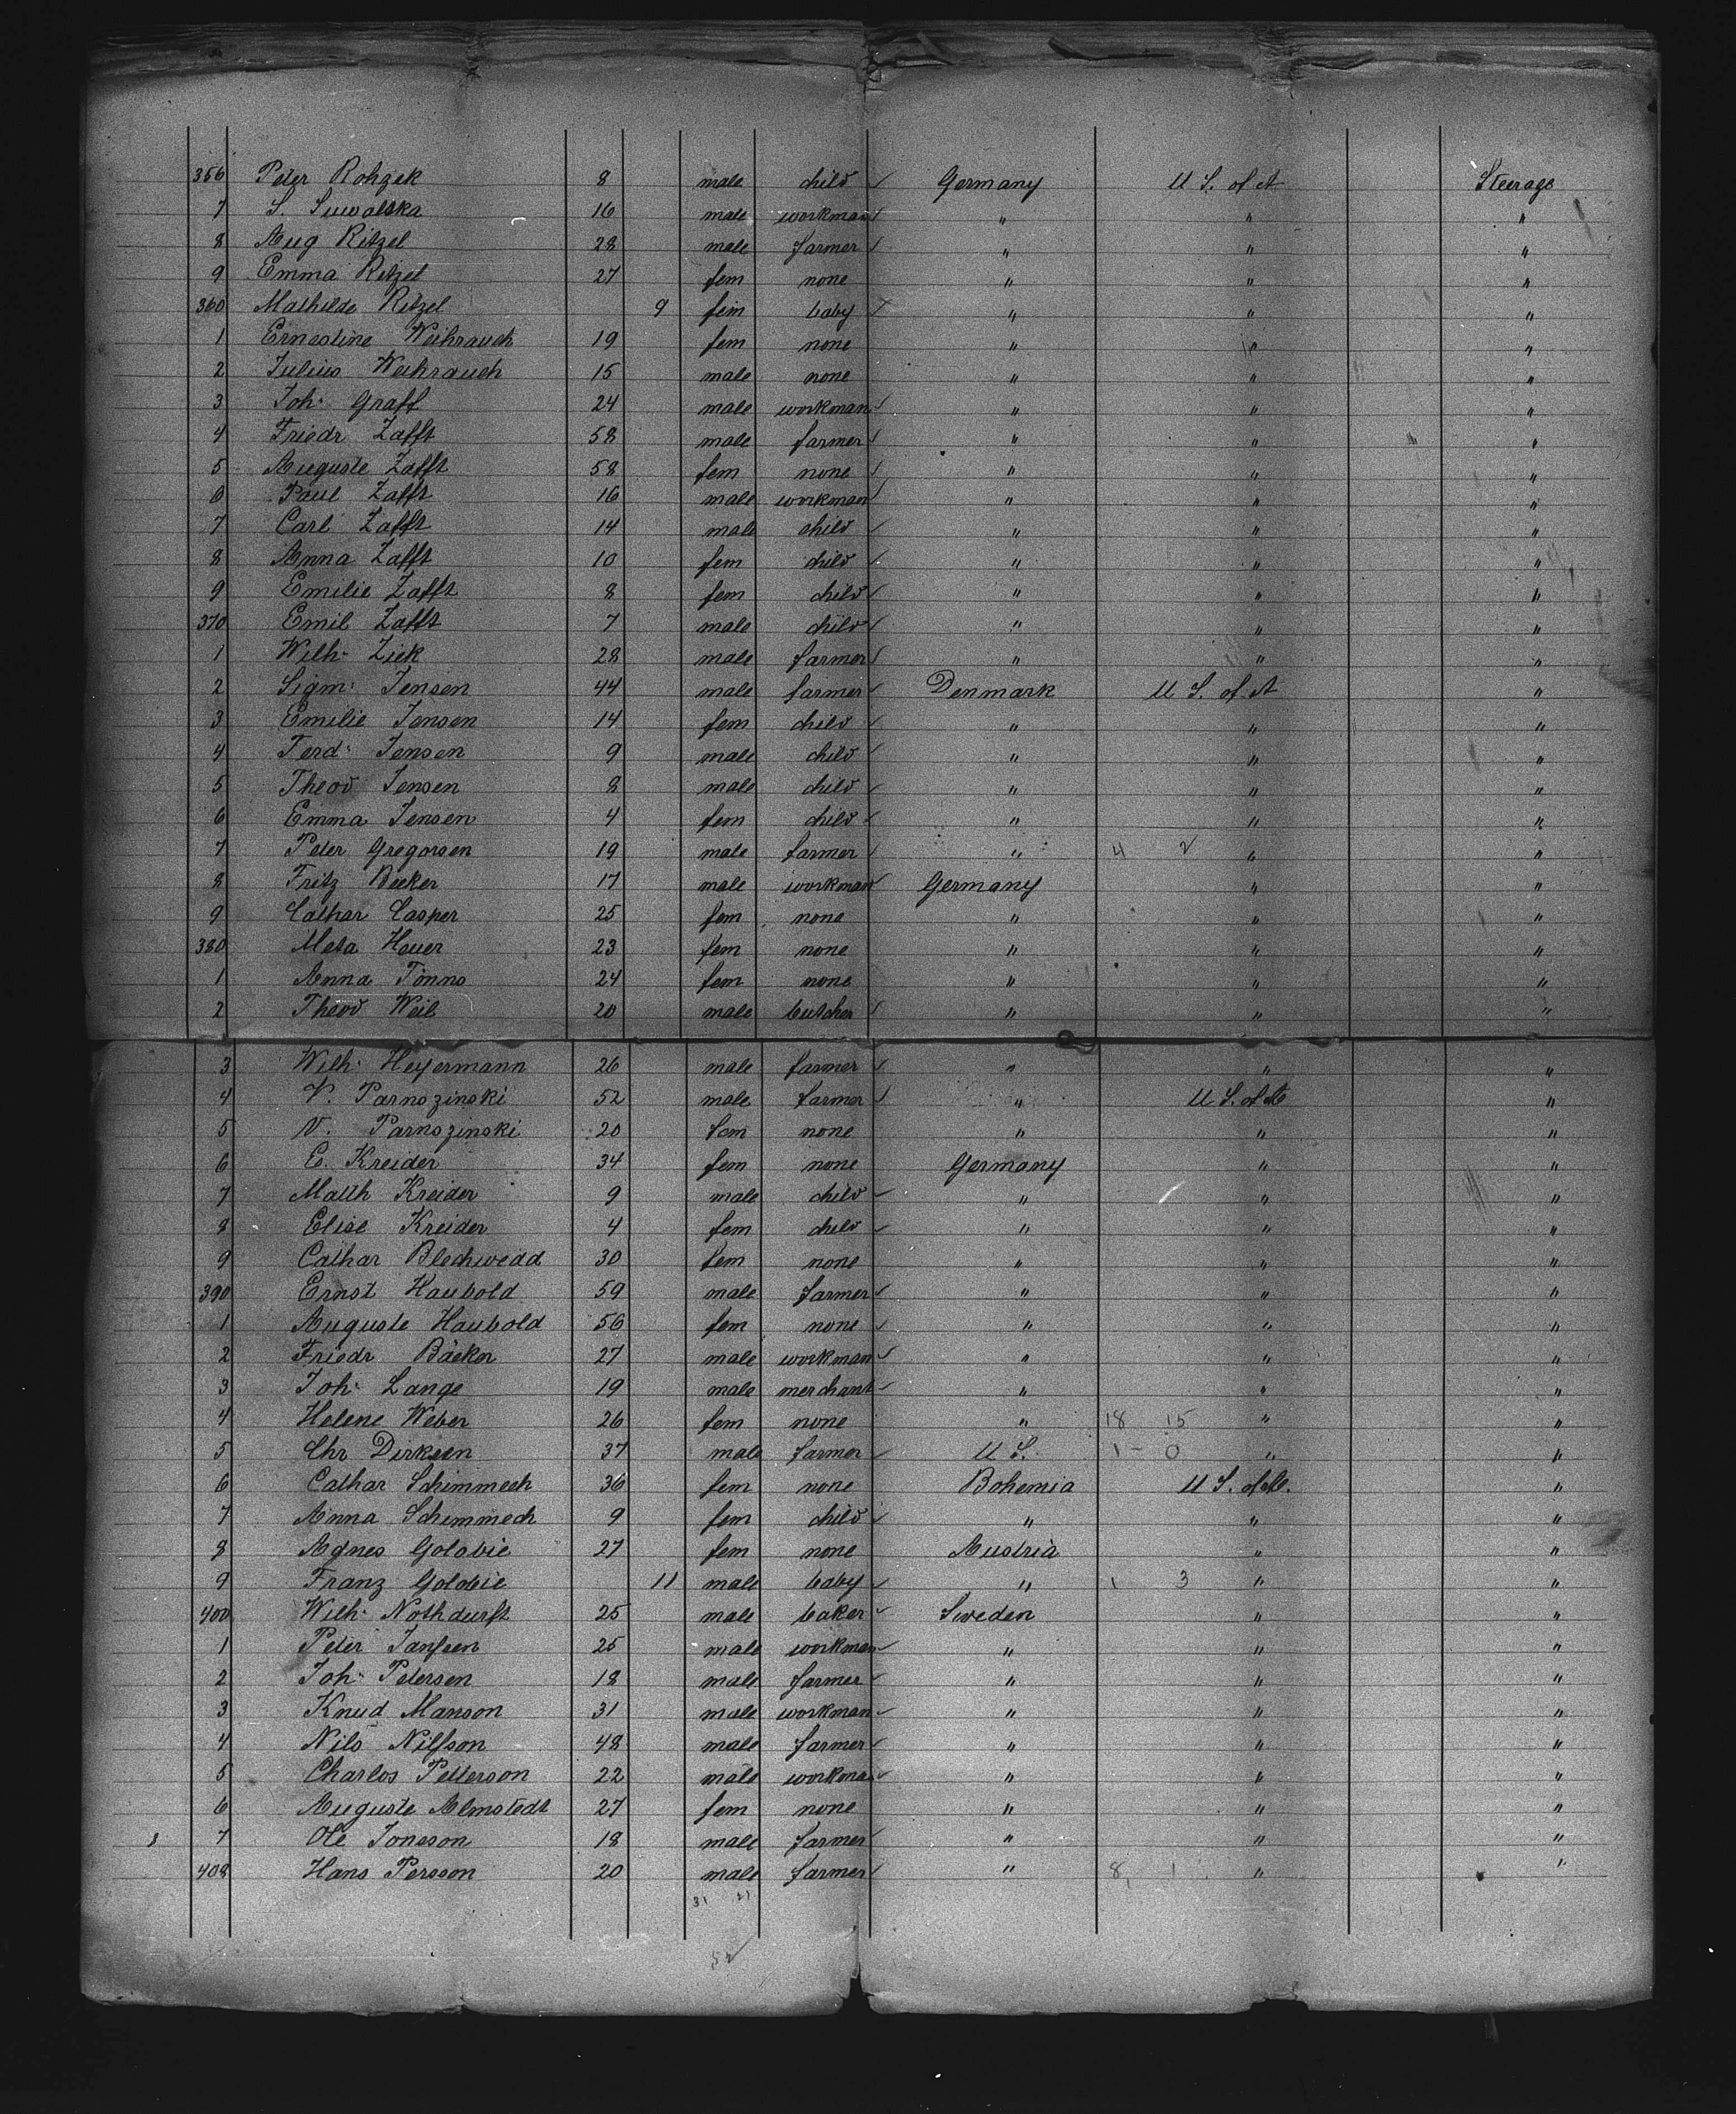 356 Peter Rohzek 8 male child Germany U S. of A Steerage
7 S. Suwalska 16 male workman " " "
8 Aug Ritzel 28 male farmer " " "
9 Emma Ritzel 27 fem none " " "
360 Mathilde Ritzel 9 fem baby " " "
1 Ernestine Weihrauch 19 fem none " " "
2 Julius Weihrauch 15 male none " " "
3 Joh. Graff 24 male workman " " "
4 Friedr Zafft 58 male farmer " " "
5 Auguste Zafft 58 fem none " " "
6 Paul Zafft 16 male workman " " "
7 Carl Zafft 14 male child " " "
8 Anna Zafft 10 fem child " " "
9 Emilie Zafft 8 fem child " " "
370 Emil Zafft 7 male child " " "
1 Wilh. Ziek 28 male farmer " " "
2 Sigm. Jensen 44 male farmer Denmark U S. of A "
3 Emilie Jensen 14 fem child " " "
4 Ferd. Jensen 9 male child " " "
5 Theod Jensen 8 male child " " "
6 Emma Jensen 4 fem child " " "
7 Peter Gregorsen 19 male farmer " 4 2 " "
8 Fritz Becker 17 male workman Germany " "
9 Cathar Casper 25 fem none " " "
380 Meta Heuer 23 fem none " " "
1 Anna Tönns 24 fem none " " "
2 Theod Weil 20 male butcher " " "
3 Wilh. Heyermann 26 male farmer " " "
4 V. Parnszinski 52 male farmer " U S. of A "
5 V. Parnszinski 20 fem none " " "
6 E. Kreider 34 fem none Germany " "
7 Matth Kreider 9 male child " " "
8 Elise Kreider 4 fem child " " "
9 Cathar Blechwedd 30 fem none " " "
390 Ernst Haubold 59 male farmer " " "
1 Auguste Haubold 56 fem none " " "
2 Friedr Bäcker 27 male workman " " "
3 Joh. Lange 19 male merchant " " "
4 Helene Weber 26 fem none " 18 15 " "
5 Chr Dirksen 37 male farmer U S. 1 - 0 " "
6 Cathar Schimmech 36 fem none Bohemia U S. of A. "
7 Anna Schimmech 9 fem child " " "
8 Agnes Golobie 27 fem none Austria " "
9 Franz Golobie 11 male baby " 1 3 " "
400 Wilh. Nothdurft 25 male baker Sweden " "
1 Peter Janssen 25 male workman " " "
2 Joh. Petersen 18 male farmer " " "
3 Knud Manson 31 male workman " " "
4 Nils Nilsson 48 male farmer " " "
5 Charles Petterson 22 male workman " " "
6 Auguste Almstedt 27 fem none " " "
7 Ole Jonsson 18 male farmer " " "
408 Hans Persson 20 male farmer " 8 1 " "
31 21
52